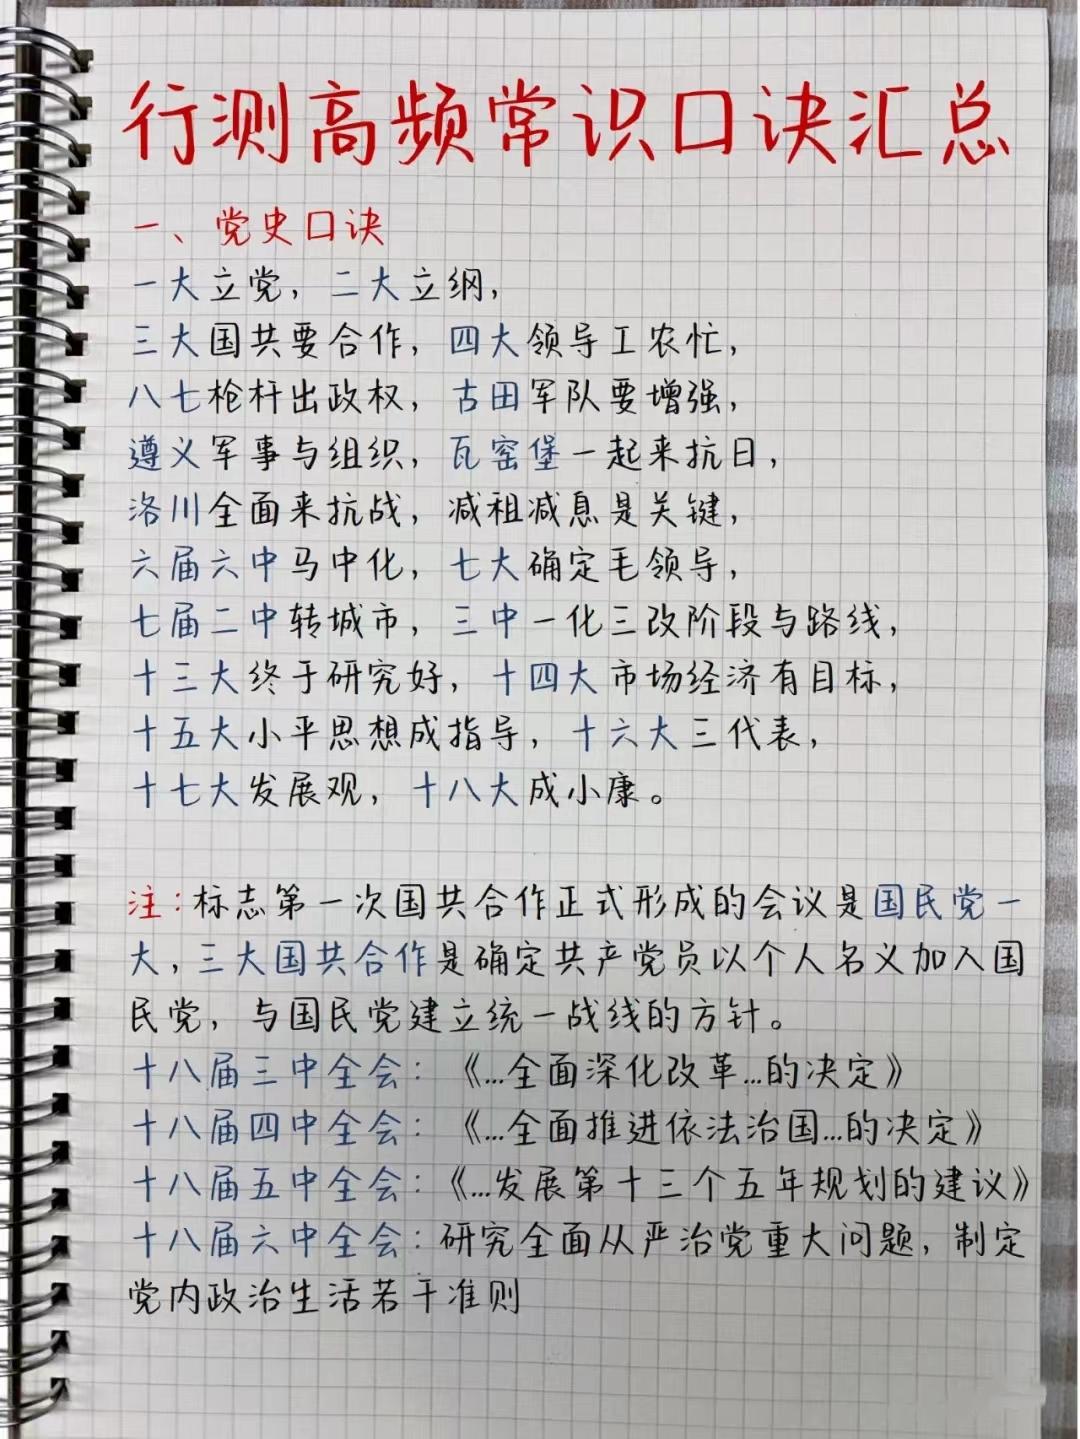 行测高频常识口诀汇总
一、党史口诀
一大立党，二大立纲，
三大国共要合作，四大领导工农忙，
八七枪杆出政权，古田军队要增强，
遵义军事与组织，瓦窑堡一起来抗日，
洛川全面来抗战，减租减息是关键，
六届六中马中化，七大确定毛领导，
七届二中转城市，三中一化三改阶段与路线，
十三大终于研究好，十四大市场经济有目标，
十五大小平思想成指导，十六大三代表，
十七大发展观，十八大成小康。
注：标志第一次国共合作正式形成的会议是国民党一
大，三大国共合作是确定共产党员以个人名义加入国
民党，与国民党建立统一战线的方针。
十八届三中全会：《…全面深化改革…的决定》
十八届四中全会：《…全面推进依法治国…的决定》
十八届五中全会：《…发展第十三个五年规划的建议》
十八届六中全会：研究全面从严治党重大问题，制定
党内政治生活若干准则